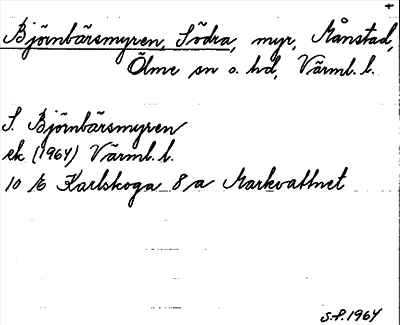 Björnbärsmyren, Södra, myr, Månstad,
Ölme sn o. hd, Värml. l.
S. Björnbärsmyren
ek (1964) Värml. l.
10 E Karlskoga 8 a Markvattnet
S.P. 1964